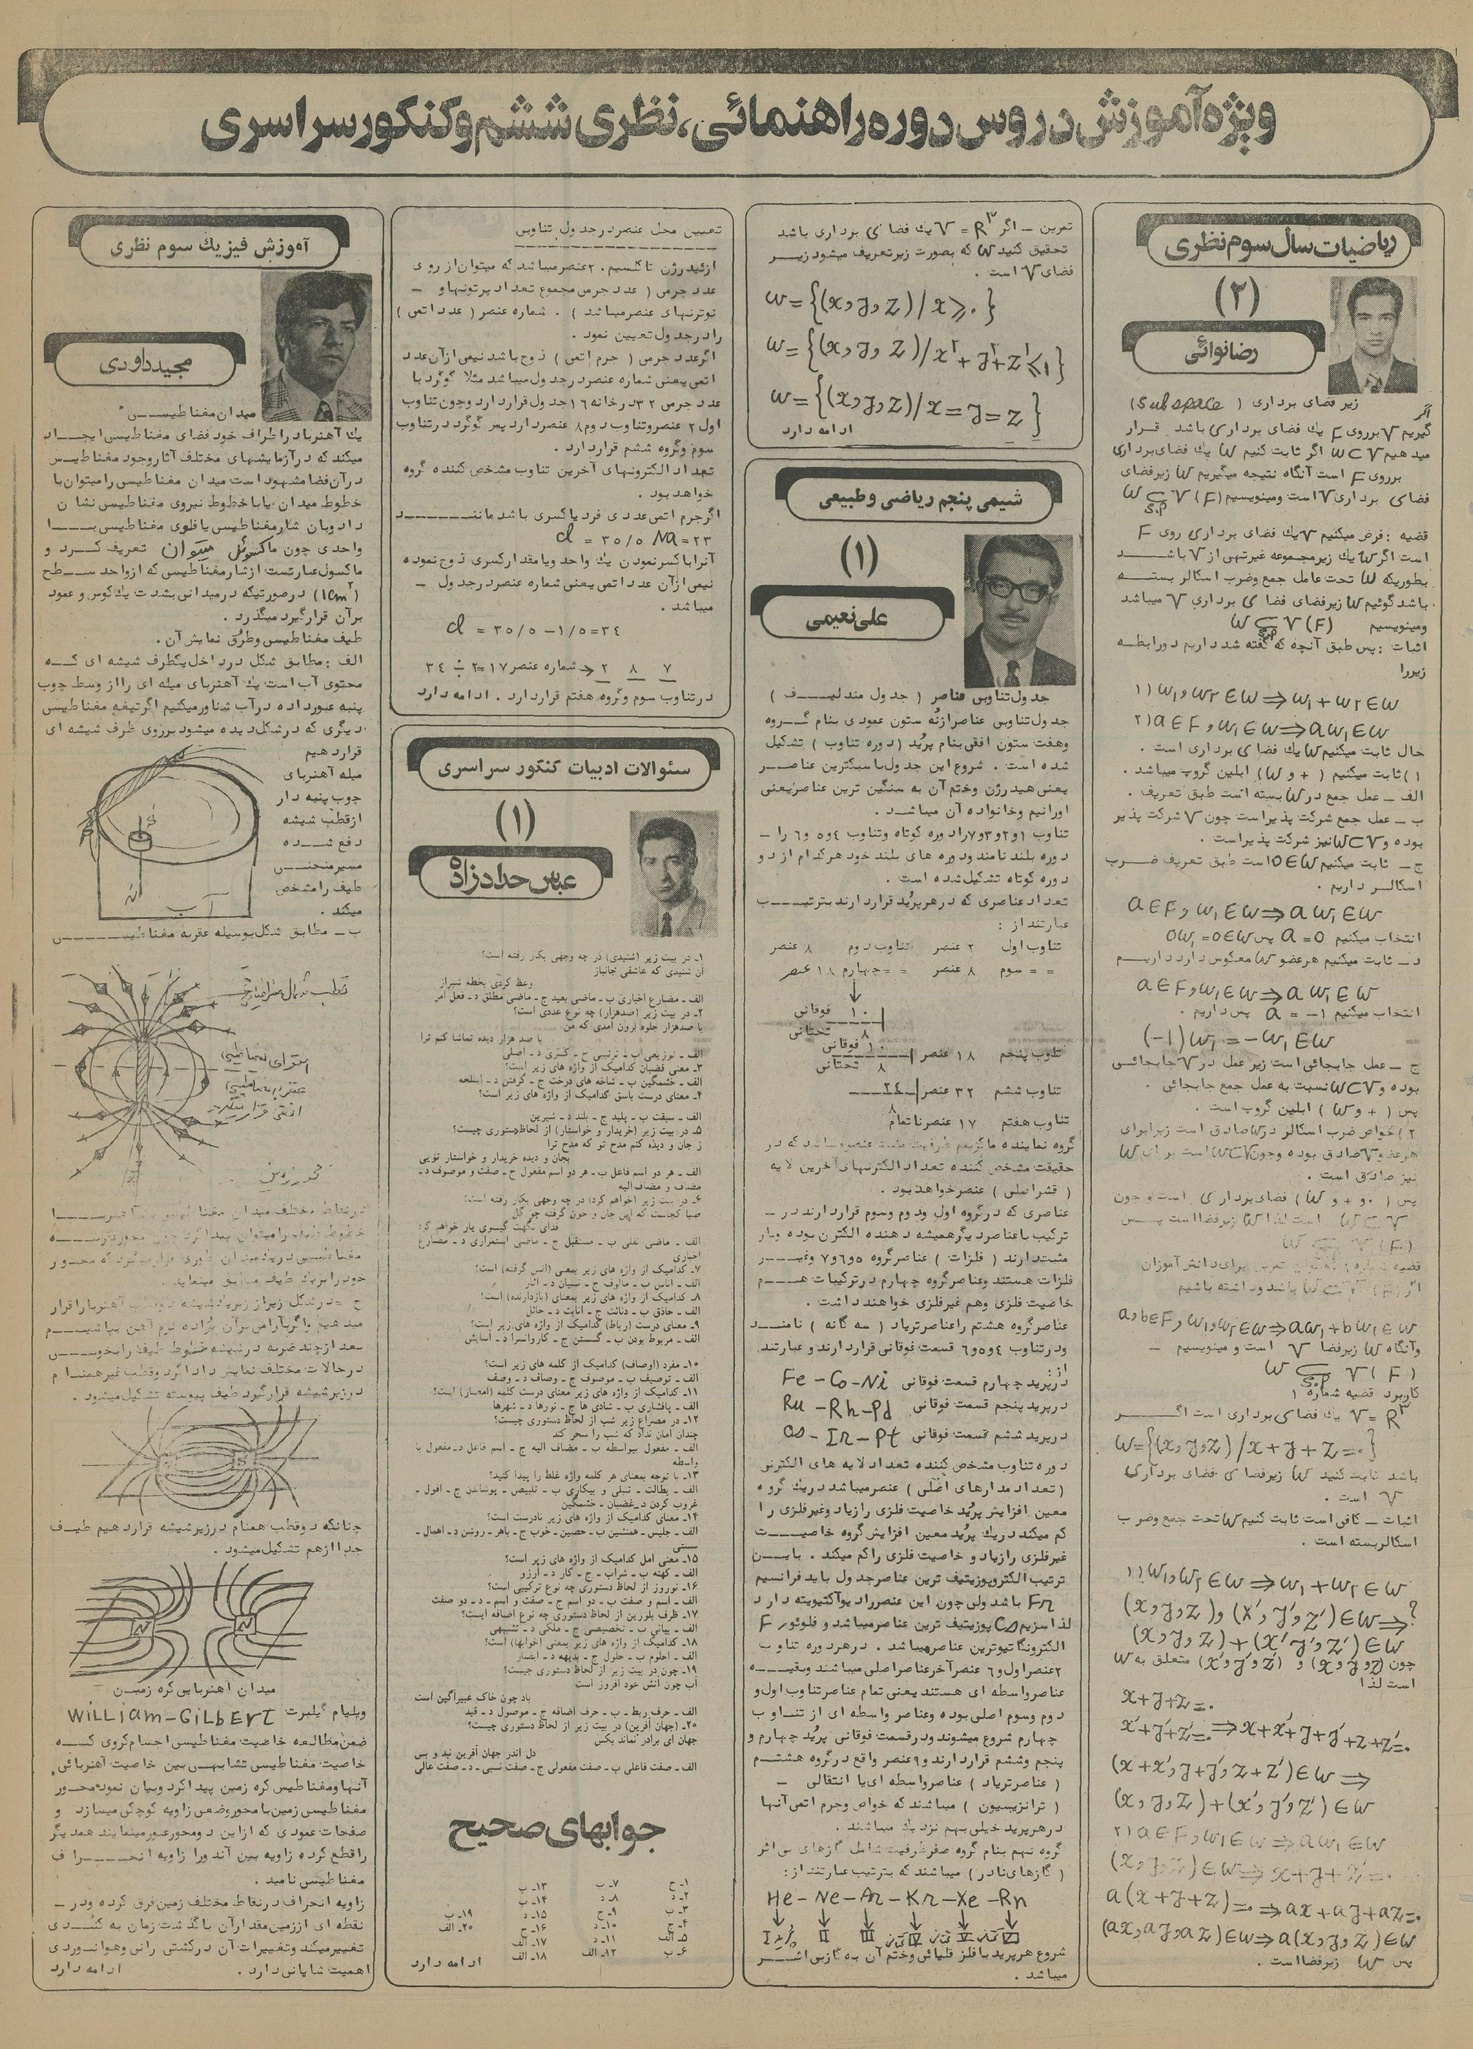 ویژه آموزش دروس دوره راهنمائی، نظری ششم و کنکور سراسری
ریاضیات سال سوم نظری
(۲)
رضا نوائی
زیر فضای برداری (Subspace)
اگر
گیریم V بر روی F یک فضای برداری باشد قرار
میدهیم W⊂V اگر ثابت کنیم W یک فضای برداری
بر روی F است آنگاه نتیجه میگیریم W زیر فضای
فضای برداری V است و مینویسیم W ⊆ V (F)
S.P
قضیه : فرض میکنیم V یک فضای برداری روی F
است اگر W یک زیر مجموعه غیر تهی از V باشد
بطوریکه W تحت عامل جمع و ضرب اسکالر بسته
باشد گوئیم W زیر فضای فضای برداری V میباشد
و مینویسیم W ⊆ V (F)
S.P
اثبات : پس طبق آنچه که گفته شد داریم دو رابطه
زیر را
۱) w₁ و w₂ ∈ W ⇒ w₁ + w₂ ∈ W
۲) a ∈ F و w₁ ∈ W ⇒ a w₁ ∈ W
حال ثابت میکنیم W یک فضای برداری است .
۱) ثابت میکنیم ( + و W ) ابلین گروپ میباشد .
الف ــ عمل جمع در W بسته است طبق تعریف .
ب ــ عمل جمع شرکت پذیر است چون V شرکت پذیر
بوده و W⊂V نیز شرکت پذیر است .
ج ــ ثابت میکنیم O∈W است طبق تعریف ضرب
اسکالر داریم .
a ∈ F و w₁ ∈ W ⇒ a w₁ ∈ W
انتخاب میکنیم a = 0 پس 0w₁ = 0 ∈ W
د ــ ثابت میکنیم هر عضو W معکوس دارد داریم
a ∈ F و w₁ ∈ W ⇒ a w₁ ∈ W
انتخاب میکنیم a = -۱ پس داریم .
(-۱) w₁ = -w₁ ∈ W
ج ــ عمل جابجائی است زیر عمل در V جابجائی
بوده و W⊂V نسبت به عمل جمع جابجائی .
پس ( + و W ) ابلین گروپ است .
۲) خواص ضرب اسکالر در W صادق است زیرا برای
نیز صادق است .
کاربرد قضیه شماره ۱
V = R³ یک فضای برداری است اگر
W = {(x, y, z) / x + y + z = ۰}
باشد ثابت کنید W زیر فضای فضای برداری
V است .
اثبات ــ کافی است ثابت کنیم W تحت جمع و ضرب
اسکالر بسته است .
۱) w₁ و w₂ ∈ W ⇒ w₁ + w₂ ∈ W
(x, y, z) و (x′, y′, z′) ∈ W ⇒ ?
(x, y, z) + (x′, y′, z′) ∈ W
چون (x و y و z) و (x′ و y′ و z′) متعلق به W
است لذا
x + y + z = ۰
x′ + y′ + z′ = ۰ ⇒ x + x′ + y + y′ + z + z′ = ۰
(x + x′, y + y′, z + z′) ∈ W ⇒
(x, y, z) + (x′, y′, z′) ∈ W
۲) a ∈ F و w₁ ∈ W ⇒ a w₁ ∈ W
a (x + y + z) = ۰ ⇒ ax + ay + az = ۰
(ax, ay, az) ∈ W ⇒ a (x, y, z) ∈ W
پس W زیر فضا است .
تمرین ــ اگر V = R³ یک فضای برداری باشد
تحقیق کنید W که بصورت زیر تعریف میشود زیر
فضای V است .
W = {(x, y, z) / x ⩾ ۰}
W = {(x, y, z) / x² + y² + z² ⩽ ۱}
W = {(x, y, z) / x = y = z}
ادامه دارد
شیمی پنجم ریاضی و طبیعی
(۱)
علی نعیمی
جدول تناوبی عناصر ( جدول مندلیف )
جدول تناوبی عناصر از نُه ستون عمودی بنام گروه
و هفت ستون افقی بنام پریُد ( دوره تناوب ) تشکیل
شده است . شروع این جدول با سبکترین عناصر
یعنی هیدرژن و ختم آن به سنگین ترین عناصر یعنی
اورانیم و خانواده آن میباشد .
تناوب ۱ و ۲ و ۳ و ۷ را دوره کوتاه و تناوب ٤ و ٥ و ٦ را ــ
دوره بلند نامند و دوره های بلند خود هر کدام از دو
دوره کوتاه تشکیل شده است .
تعداد عناصری که در هر پریُد قرار دارند بترتیب
عبارتند از :
تناوب اول ۲ عنصر تناوب دوم ۸ عنصر
= = سوم ۸ عنصر = = چهارم ۱۸ عنصر
۱۰ فوقانی
۸ تحتانی
تناوب پنجم ۱۸ عنصر ۱۰ فوقانی
۸ تحتانی
تناوب ششم ۳۲ عنصر ۲٤
۸
تناوب هفتم ۱۷ عنصر ناتمام
حقیقت مشخص کننده تعداد الکترنهای آخرین لایه
( قشر اصلی ) عنصر خواهد بود .
عناصری که در گروه اول و دوم و سوم قرار دارند در ــ
ترکیب با عناصر دیگر همیشه دهنده الکترن بوده و بار
مثبت دارند ( فلزات ) عناصر گروه ٥ و ٦ و ۷ و غیر
فلزات هستند و عناصر گروه چهارم در ترکیبات هم
خاصیت فلزی و هم غیر فلزی خواهند داشت .
عناصر گروه هشتم را عناصر تریاد ( سه گانه ) نامند
و در تناوب ٤ و ٥ و ٦ قسمت فوقانی قرار دارند و عبارتند
از :
در پرید چهارم قسمت فوقانی Fe - Co - Ni
در پرید پنجم قسمت فوقانی Ru - Rh - Pd
در پرید ششم قسمت فوقانی Os - Ir - Pt
دوره تناوب مشخص کننده تعداد لایه های الکترنی
( تعداد مدارهای اصلی ) عنصر میباشد در یک گروه
معین افزایش پریُد خاصیت فلزی را زیاد و غیر فلزی را
کم میکند در یک پریُد معین افزایش گروه خاصیت
غیر فلزی را زیاد و خاصیت فلزی را کم میکند . باین
ترتیب الکتروپوزیتیف ترین عناصر جدول باید فرانسیم
Fr باشد ولی چون این عنصر رادیوآکتیویته دارد
لذا سزیم Cs پوزیتیف ترین عناصر میباشد و فلوئور F
الکترونگاتیوترین عناصر میباشد . در هر دوره تناوب
۲ عنصر اول و ٦ عنصر آخر عناصر اصلی میباشند و بقیه
عناصر واسطه ای هستند یعنی تمام عناصر تناوب اول و
دوم و سوم اصلی بوده و عناصر واسطه ای از تناوب
چهارم شروع میشوند و در قسمت فوقانی پریُد چهارم و
پنجم و ششم قرار دارند و ۹ عنصر واقع در گروه هشتم
( عناصر تریاد ) عناصر واسطه ای یا انتقالی ــ
( ترانزیسیون ) میباشند که خواص و جرم اتمی آنها
در هر پرید خیلی بهم نزدیک میباشند .
گروه نهم بنام گروه صفر ظرفیت شامل گازهای بی اثر
( گازهای نادر ) میباشند که بترتیب عبارتند از :
He - Ne - Ar - Kr - Xe - Rn
پرید I II III IV V VI
شروع هر پرید با فلز قلیائی و ختم آن به گاز بی اثر
میباشد .
تعیین محل عنصر در جدول تناوبی
از ئیدرژن تا کلسیم ، ۲۰ عنصر میباشد که میتوان از روی
عدد جرمی ( عدد جرمی مجموع تعداد پرتونها و ــ
نوترنهای عنصر میباشد ) . شماره عنصر ( عدد اتمی )
را در جدول تعیین نمود .
اگر عدد جرمی ( جرم اتمی ) زوج باشد نیمی از آن عدد
اتمی یعنی شماره عنصر در جدول میباشد مثلا گوگرد با
عدد جرمی ۳۲ در خانه ۱٦ جدول قرار دارد و چون تناوب
اول ۲ عنصر و تناوب دوم ۸ عنصر دارد پس گوگرد در تناوب
سوم و گروه ششم قرار دارد .
تعداد الکترونهای آخرین تناوب مشخص کننده گروه
خواهد بود .
اگر جرم اتمی عددی فرد یا کسری باشد مانند
Cl = ۳٥/٥ Na = ۲۳
آنرا با کسر نمودن یک واحد و یا مقدار کسری زوج نموده
نیمی از آن عدد اتمی یعنی شماره عنصر در جدول ــ
میباشد .
Cl = ۳٥/٥ - ۱/٥ = ۳٤
۳٤ ÷ ۲ = ۱۷ شماره عنصر → ۲ ۸ ۷
در تناوب سوم و گروه هفتم قرار دارد . ادامه دارد
سئوالات ادبیات کنکور سراسری
(۱)
عباس حدادزاده
۱ـ در بیت زیر (شنیدی) در چه وجهی بکار رفته است؟
آن شنیدی که عاشقی جانباز
وعظ کردی بخطه شیراز
الف ـ مضارع اخباری ب ـ ماضی بعید ج ـ ماضی مطلق د ـ فعل امر
۲ـ در بیت زیر (صدهزار) چه نوع عددی است؟
با صدهزار جلوه برون آمدی که من
با صد هزار دیده تماشا کنم ترا
الف ـ توزیعی ب ـ ترتیبی ج ـ کسری د ـ اصلی
۳ـ معنی قضبان کدامیک از واژه های زیر است؟
الف ـ خشمگین ب ـ شاخه های درخت ج ـ گرفتن د ـ اسلحه
۴ـ معنای درست باسق کدامیک از واژه های زیر است؟
الف ـ سبقت ب ـ پلید ج ـ بلند د ـ شیرین
۵ـ در بیت زیر (خریدار و خواستار) از لحاظ دستوری چیست؟
ز جان و دیده کنم مدح تو که مدح ترا
بجان و دیده خریدار و خواستار توئی
الف ـ هر دو اسم فاعل ب ـ هر دو اسم مفعول ج ـ صفت و موصوف د ـ
مضاف و مضاف الیه
۶ـ در بیت زیر (خواهم کرد) در چه وجهی بکار رفته است؟
صبا کجاست که این جان و خون گرفته چو گل
فدای نکهت گیسوی یار خواهم کرد
الف ـ ماضی نقلی ب ـ مستقبل ج ـ ماضی استمراری د ـ مضارع
اخباری
۷ـ کدامیک از واژه های زیر بمعنی (انس گرفته) است؟
الف ـ اناس ب ـ مالوف ج ـ نسیان د ـ آثار
۸ـ کدامیک از واژه های زیر بمعنای (بازدارنده) است؟
الف ـ حاذق ب ـ دنائت ج ـ انابت د ـ حائل
۹ـ معنای درست (رباط) کدامیک از واژه های زیر است؟
الف ـ مربوط بودن ب ـ گسستن ج ـ کاروانسرا د ـ آسایش
۱۰ـ مفرد (اوصاف) کدامیک از کلمه های زیر است؟
الف ـ توصیف ب ـ موصوف ج ـ وصاف د ـ وصف
۱۱ـ کدامیک از واژه های زیر معنای درست کلمه (امصار) است؟
الف ـ پافشاری ب ـ شادی ها ج ـ نورها د ـ شهرها
۱۲ـ در مصراع زیر شب از لحاظ دستوری چیست؟
چندان امان نداد که شب را سحر کند
الف ـ مفعول بیواسطه ب ـ مضاف الیه ج ـ اسم فاعل د ـ مفعول با
واسطه
۱۳ـ با توجه بمعنای هر کلمه واژه غلط را پیدا کنید؟
الف ـ بطالت ـ تنبلی و بیکاری ب ـ تلبیص ـ پوشاندن ج ـ افول ـ
غروب کردن د ـ غضبان ـ خشمگین
۱۴ـ معنای کدامیک از واژه های زیر نادرست است؟
الف ـ جلیس ـ همنشین ب ـ حصین ـ خوب ج ـ باهر ـ روشن د ـ اهمال ـ
سستی
۱۵ـ معنی امل کدامیک از واژه های زیر است؟
الف ـ کهنه ب ـ شراب ـ ج ـ کار د ـ آرزو
۱۶ـ نوروز از لحاظ دستوری چه نوع ترکیبی است؟
الف ـ اسم و صفت ب ـ دو اسم ج ـ صفت و اسم ـ د ـ دو صفت
۱۷ـ ظرف بلورین از لحاظ دستوری چه نوع اضافه است؟
الف ـ بیانی ب ـ تخصیصی ج ـ ملکی د ـ تشبیهی
۱۸ـ کدامیک از واژه های زیر بمعنی (خوابها) است؟
الف ـ احلام ب ـ حلول ج ـ بدیهه د ـ ابصار
۱۹ـ چون در بیت زیر از لحاظ دستوری چیست؟
آب چون آتش عود افروز است
باد چون خاک عبیرآگین است
الف ـ حرف ربط ـ ب ـ حرف اضافه ج ـ موصول د ـ قید
۲۰ـ (جهان آفرین) در بیت زیر از لحاظ دستوری چیست؟
جهان ای برادر نماند بکس
دل اندر جهان آفرین بند و بس
الف ـ صفت فاعلی ب ـ صفت مفعولی ج ـ صفت نسبی ـ د ـ صفت عالی
جوابهای صحیح
۱ـ ج
۲ـ د
۳ـ ب
۴ـ ج
۵ـ الف
۶ـ ب
۷ـ ب
۸ـ د
۹ـ ج
۱۰ـ د
۱۱ـ د
۱۲ـ الف
۱۳ـ ب
۱۴ـ ب
۱۵ـ د
۱۶ـ ج
۱۷ـ الف
۱۸ـ الف
۱۹ـ ب
۲۰ـ الف
ادامه دارد
آموزش فیزیک سوم نظری
مجید داودی
میدان مغناطیسی"
یک آهنربا در اطراف خود فضای مغناطیسی ایجاد
میکند که در آزمایشهای مختلف آثار وجود مغناطیس
در آن فضا مشهود است میدان مغناطیسی را میتوان با
خطوط میدان یا با خطوط نیروی مغناطیسی نشان
داد و بان شار مغناطیسی یا فلوی مغناطیسی با
واحدی چون ماکسول میتوان تعریف کرد و
ماکسول عبارتست از شار مغناطیسی که از واحد سطح
(۱cm²) در صورتیکه در میدانی بشدت یک گوس و عمود
بر آن قرار گیرد میگذرد .
طیف مغناطیسی و طرُق نمایش آن .
الف : مطابق شکل در داخل یکطرف شیشه ای که
محتوی آب است یک آهنربای میله ای را از وسط چوب
پنبه عبور داده در آب شناور میکنیم اگر تیغه مغناطیسی
دیگری که در شکل دیده میشود بر روی ظرف شیشه ای
قرار دهیم
میله آهنربای
چوب پنبه دار
از قطب شیشه
دفع شده
مسیر منحنی
طیف را مشخص
میکند .
آب
ب ــ مطابق شکل بوسیله عقربه مغناطیسی
محور زمین
خود را بر یک طیف مطابق مینماید .
ج = در شکل زیر از زیر یک شیشه دو قطب آهنربا را قرار
میدهیم و اگر بآرامی بر آن بُراده نرم آهن بپاشیم
بعد از چند ضربه در شیشه خطوط طیف را بخوبی
در حالات مختلف نمایش داد اگر دو قطب غیر همنام
در زیر شیشه قرار گیرد طیف پیوسته تشکیل میشود .
چنانکه دو قطب همنام در زیر شیشه قرار دهیم طیف
جدا از هم تشکیل میشود .
N N
میدان آهنربایی کره زمین
ویلیام گیلبرت WILLIAM-GILBERT
ضمن مطالعه خاصیت مغناطیسی اجسام کروی که
خاصیت مغناطیسی تشابهی بین خاصیت آهنربائی
آنها و مغناطیس کره زمین پیدا کرد و بیان نمود محور
مغناطیسی زمین با محور وضعی زاویه کوچکی میسازد و
صفحات عمودی که از این دو محور عبور مینمایند همدیگر
را قطع کرده زاویه بین آندو را زاویه انحراف
مغناطیسی نامید .
زاویه انحراف در نقاط مختلف زمین فرق کرده و در ــ
نقطه ای از زمین مقدار آن با گذشت زمان به کندی
تغییر میکند و تغییرات آن در کشتی رانی و هوانوردی
اهمیت شایانی دارد . ادامه دارد